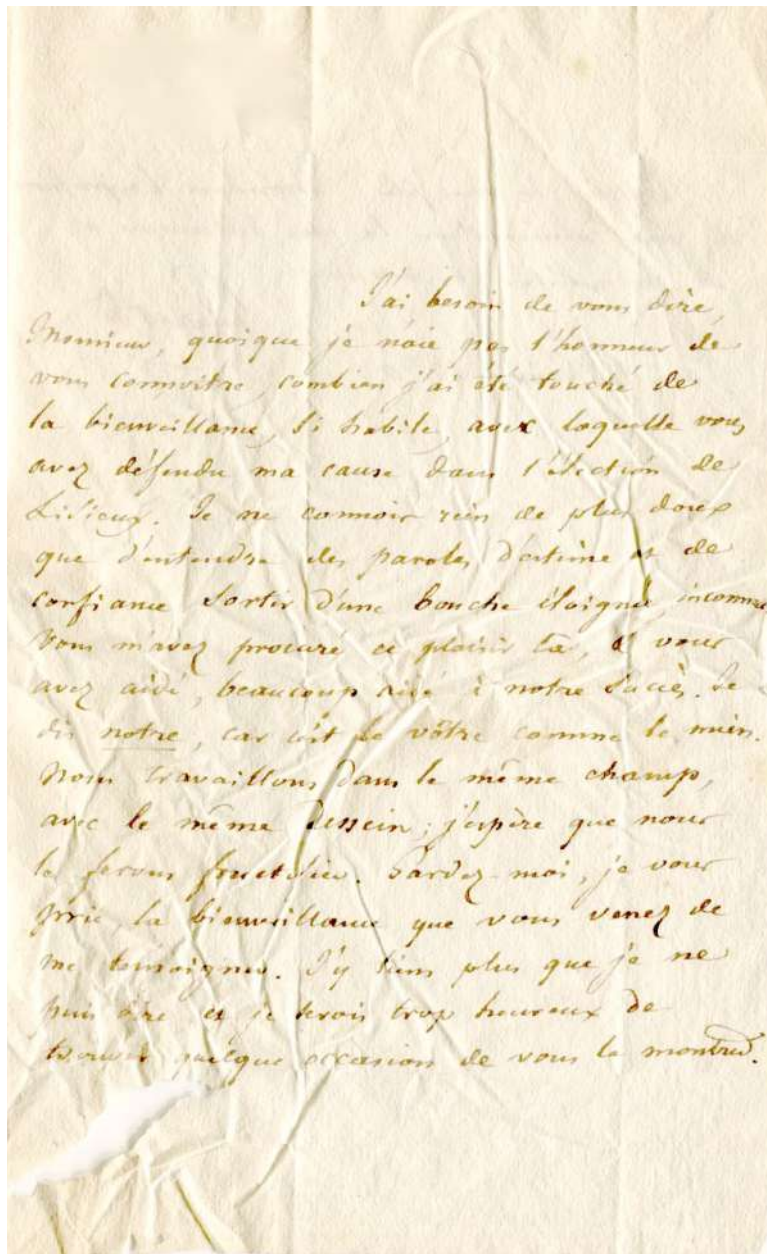 J'ai besoin de vous dire,
Monsieur, quoique je n'aie pas l'honneur de
vous connoitre, combien j'ai été touché de
la bienveillance, si habile, avec laquelle vous
avez défendu ma cause dans l'élection de
Lisieux. Je ne connois rien de plus doux
que d'entendre des paroles d'estime et de
confiance sortir d'une bouche éloignée, inconnue
Vous m'avez procuré ce plaisir là, et vous
avez aidé, beaucoup aidé à notre succès. Je
dis notre, car c'est le vôtre comme le mien.
Nous travaillons dans le même champ,
avec le même dessein; j'espère que nous
le ferons fructifier. Gardez-moi, je vous
prie, la bienveillance que vous venez de
me témoigner. J'y tiens plus que je ne
puis dire et je serois trop heureux de
trouver quelque occasion de vous le montrer.